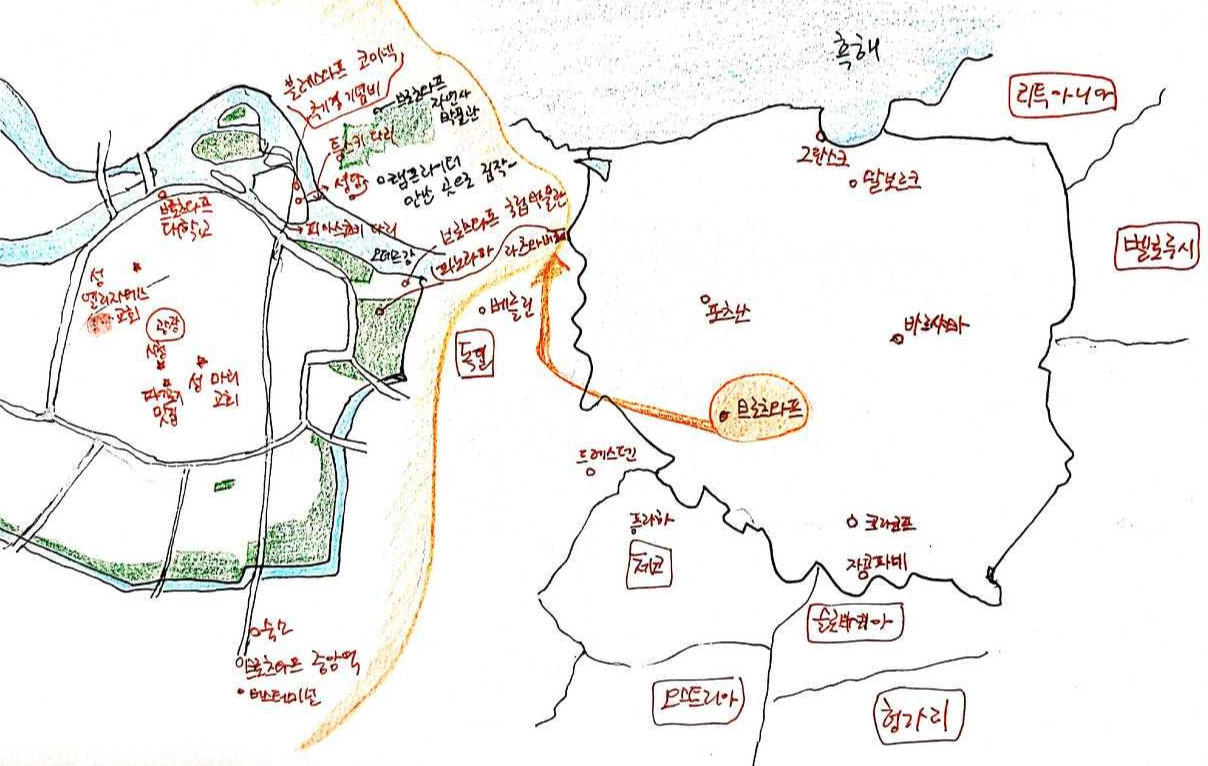 볼레스와프 코미넥
추기경 기념비
브로츠와프
자연사
박물관
툼스키 다리
성당
램프라이터
만난 곳으로 짐작~
브로츠와프 국립박물관
파노라마 라츠와비체
피아스코비 다리
오데르강
브로츠와프
대학교
성
엘리자베스
교회
광장
시청
맛집
성 마리
교회
숙소
브로츠와프 중앙역
버스터미널
흑해
리투아니아
그단스크
말보르크
벨로루시
포츠난
바르샤바
베를린
독일
브로츠와프
드레스덴
프라하
체코
크라쿠프
자코파네
슬로바키아
오스트리아
헝가리